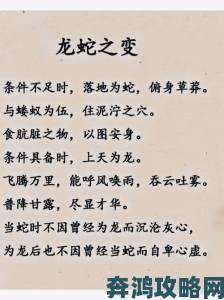 龙蛇之变
条件不足时，落地为蛇，俯身草莽。
与蝼蚁为伍，住泥泞之穴。
食肮脏之物，以图安身。
条件具备时，上天为龙。
飞腾万里，能呼风唤雨，吞云吐雾。
普降甘露，尽显才华。
当蛇时不因曾经为龙而沉沦灰心，
为龙后也不因曾经当蛇而自卑心虚。
奔鸿攻略网